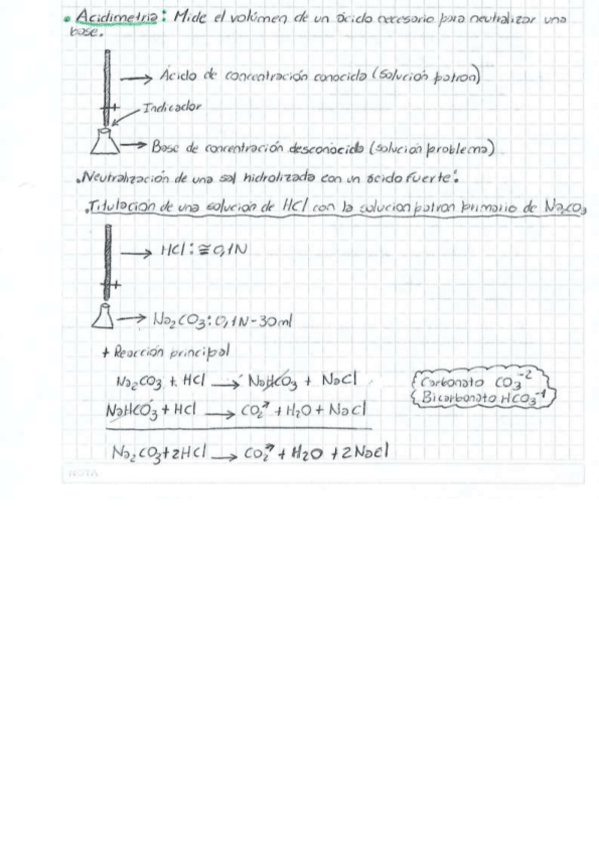 • Acidimetria: Mide el volúmen de un ácido necesario para neutralizar una
base.
→ Ácido de concentración conocida (solución patron)
Indicador
→ Base de concentración desconocida (solución problema)
. Neutralización de una sal hidrolizada con un ácido fuerte:
. Titulación de una solución de HCl con la solucion patron primario de Na2CO3
→ HCl: ≅ 0,1N
→ Na2CO3: 0,1N - 30ml
+ Reacción principal
Na2CO3 + HCl → NaHCO3 + NaCl
Carbonato CO3-2
NaHCO3 + HCl → CO2↗ + H2O + NaCl
Bicarbonato HCO3-1
Na2CO3 + 2HCl → CO2↗ + H2O + 2NaCl
NOTA